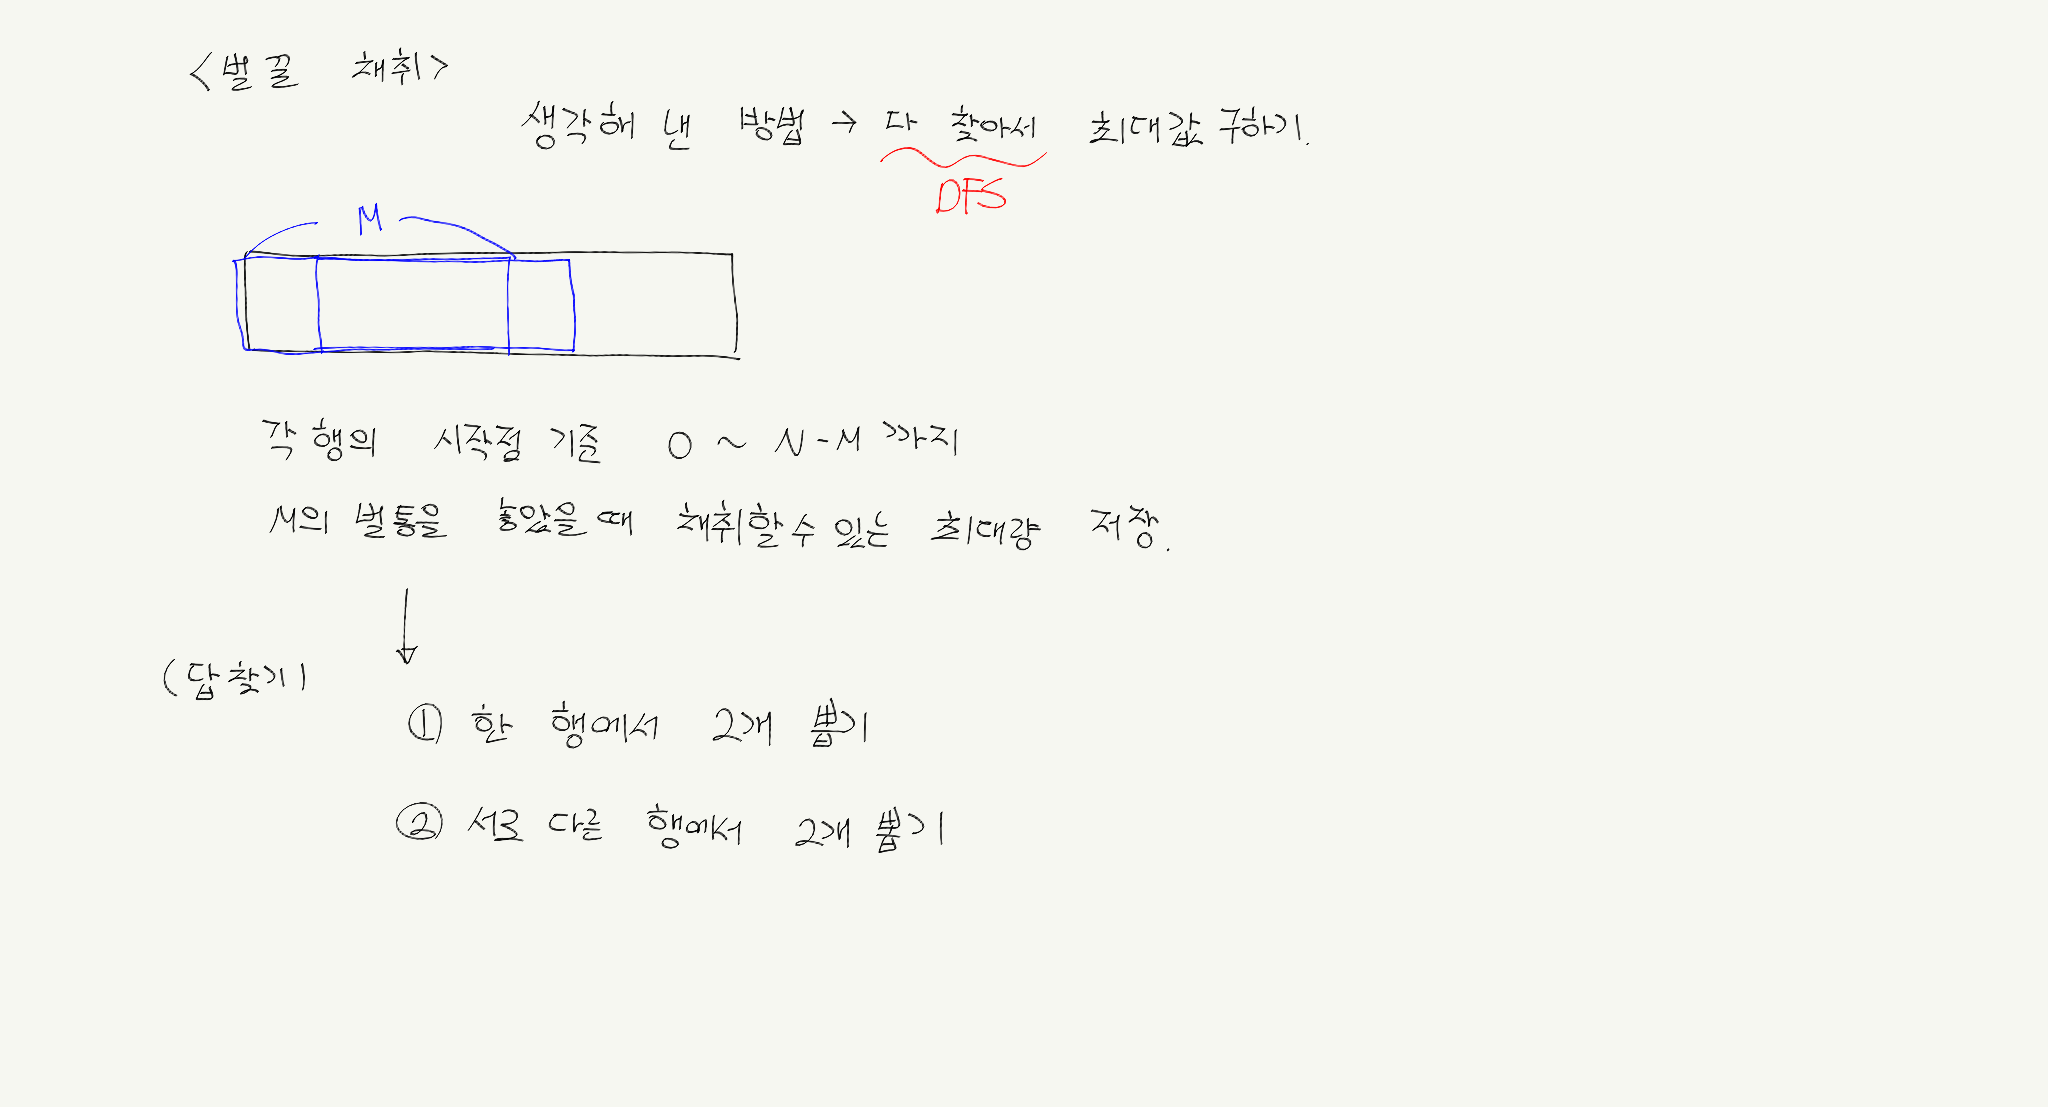 <벌꿀 채취>
생각해 낸 방법 → 다 찾아서 최대값 구하기.
DFS
M
각 행의 시작점 기준 0 ~ N-M 까지
M의 벌통을 놓았을 때 채취할 수 있는 최대량 저장.
↓
(답 찾기)
① 한 행에서 2개 뽑기
② 서로 다른 행에서 2개 뽑기